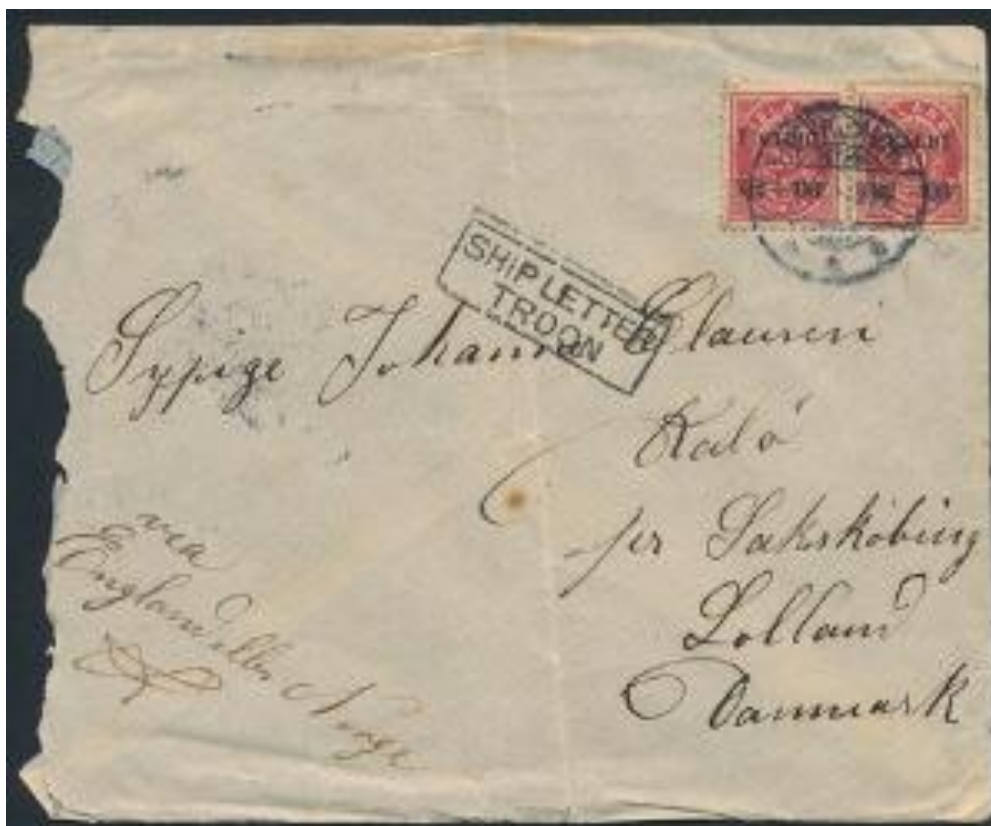 SHIP LETTER
TROON
Johanne Clausen
Kalö
pr Saksköbing
Lolland
Danmark
via
England eller Norge